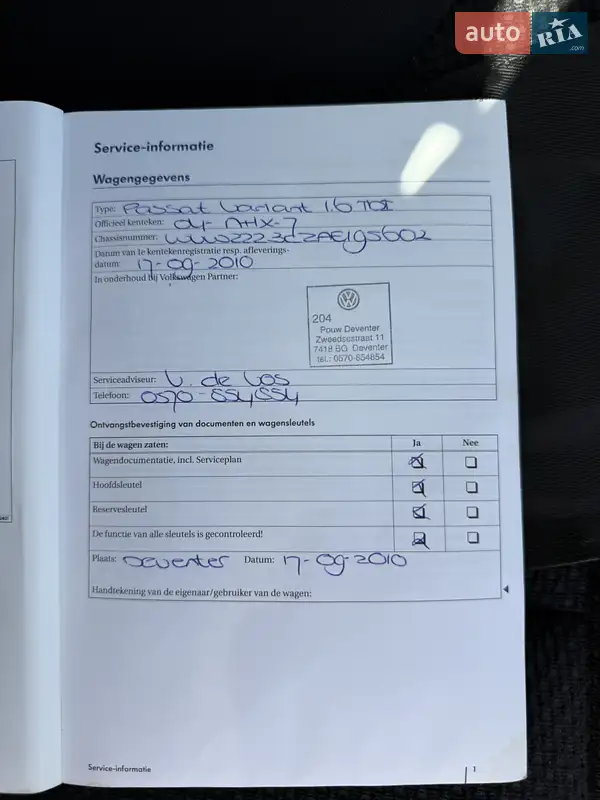 auto RIA .com
Service-informatie
Wagengegevens
Type: Passat Variant 1.6 TDI
Officieel kenteken: 04-NHX-7
Chassisnummer: WVWZZZ3CZAE195602
Datum van 1e kentekenregistratie resp. afleverings-
datum: 17-09-2010
In onderhoud bij Volkswagen Partner:
204
Pouw Deventer
Zweedsestraat 11
7418 BG Deventer
tel.: 0570-854854
Serviceadviseur: V. de Vos
Telefoon: 0570-854854
Ontvangstbevestiging van documenten en wagensleutels
Bij de wagen zaten: Ja Nee
Wagendocumentatie, incl. Serviceplan
Hoofdsleutel
Reservesleutel
De functie van alle sleutels is gecontroleerd!
Plaats: Deventer Datum: 17-09-2010
Handtekening van de eigenaar/gebruiker van de wagen:
Service-informatie 1